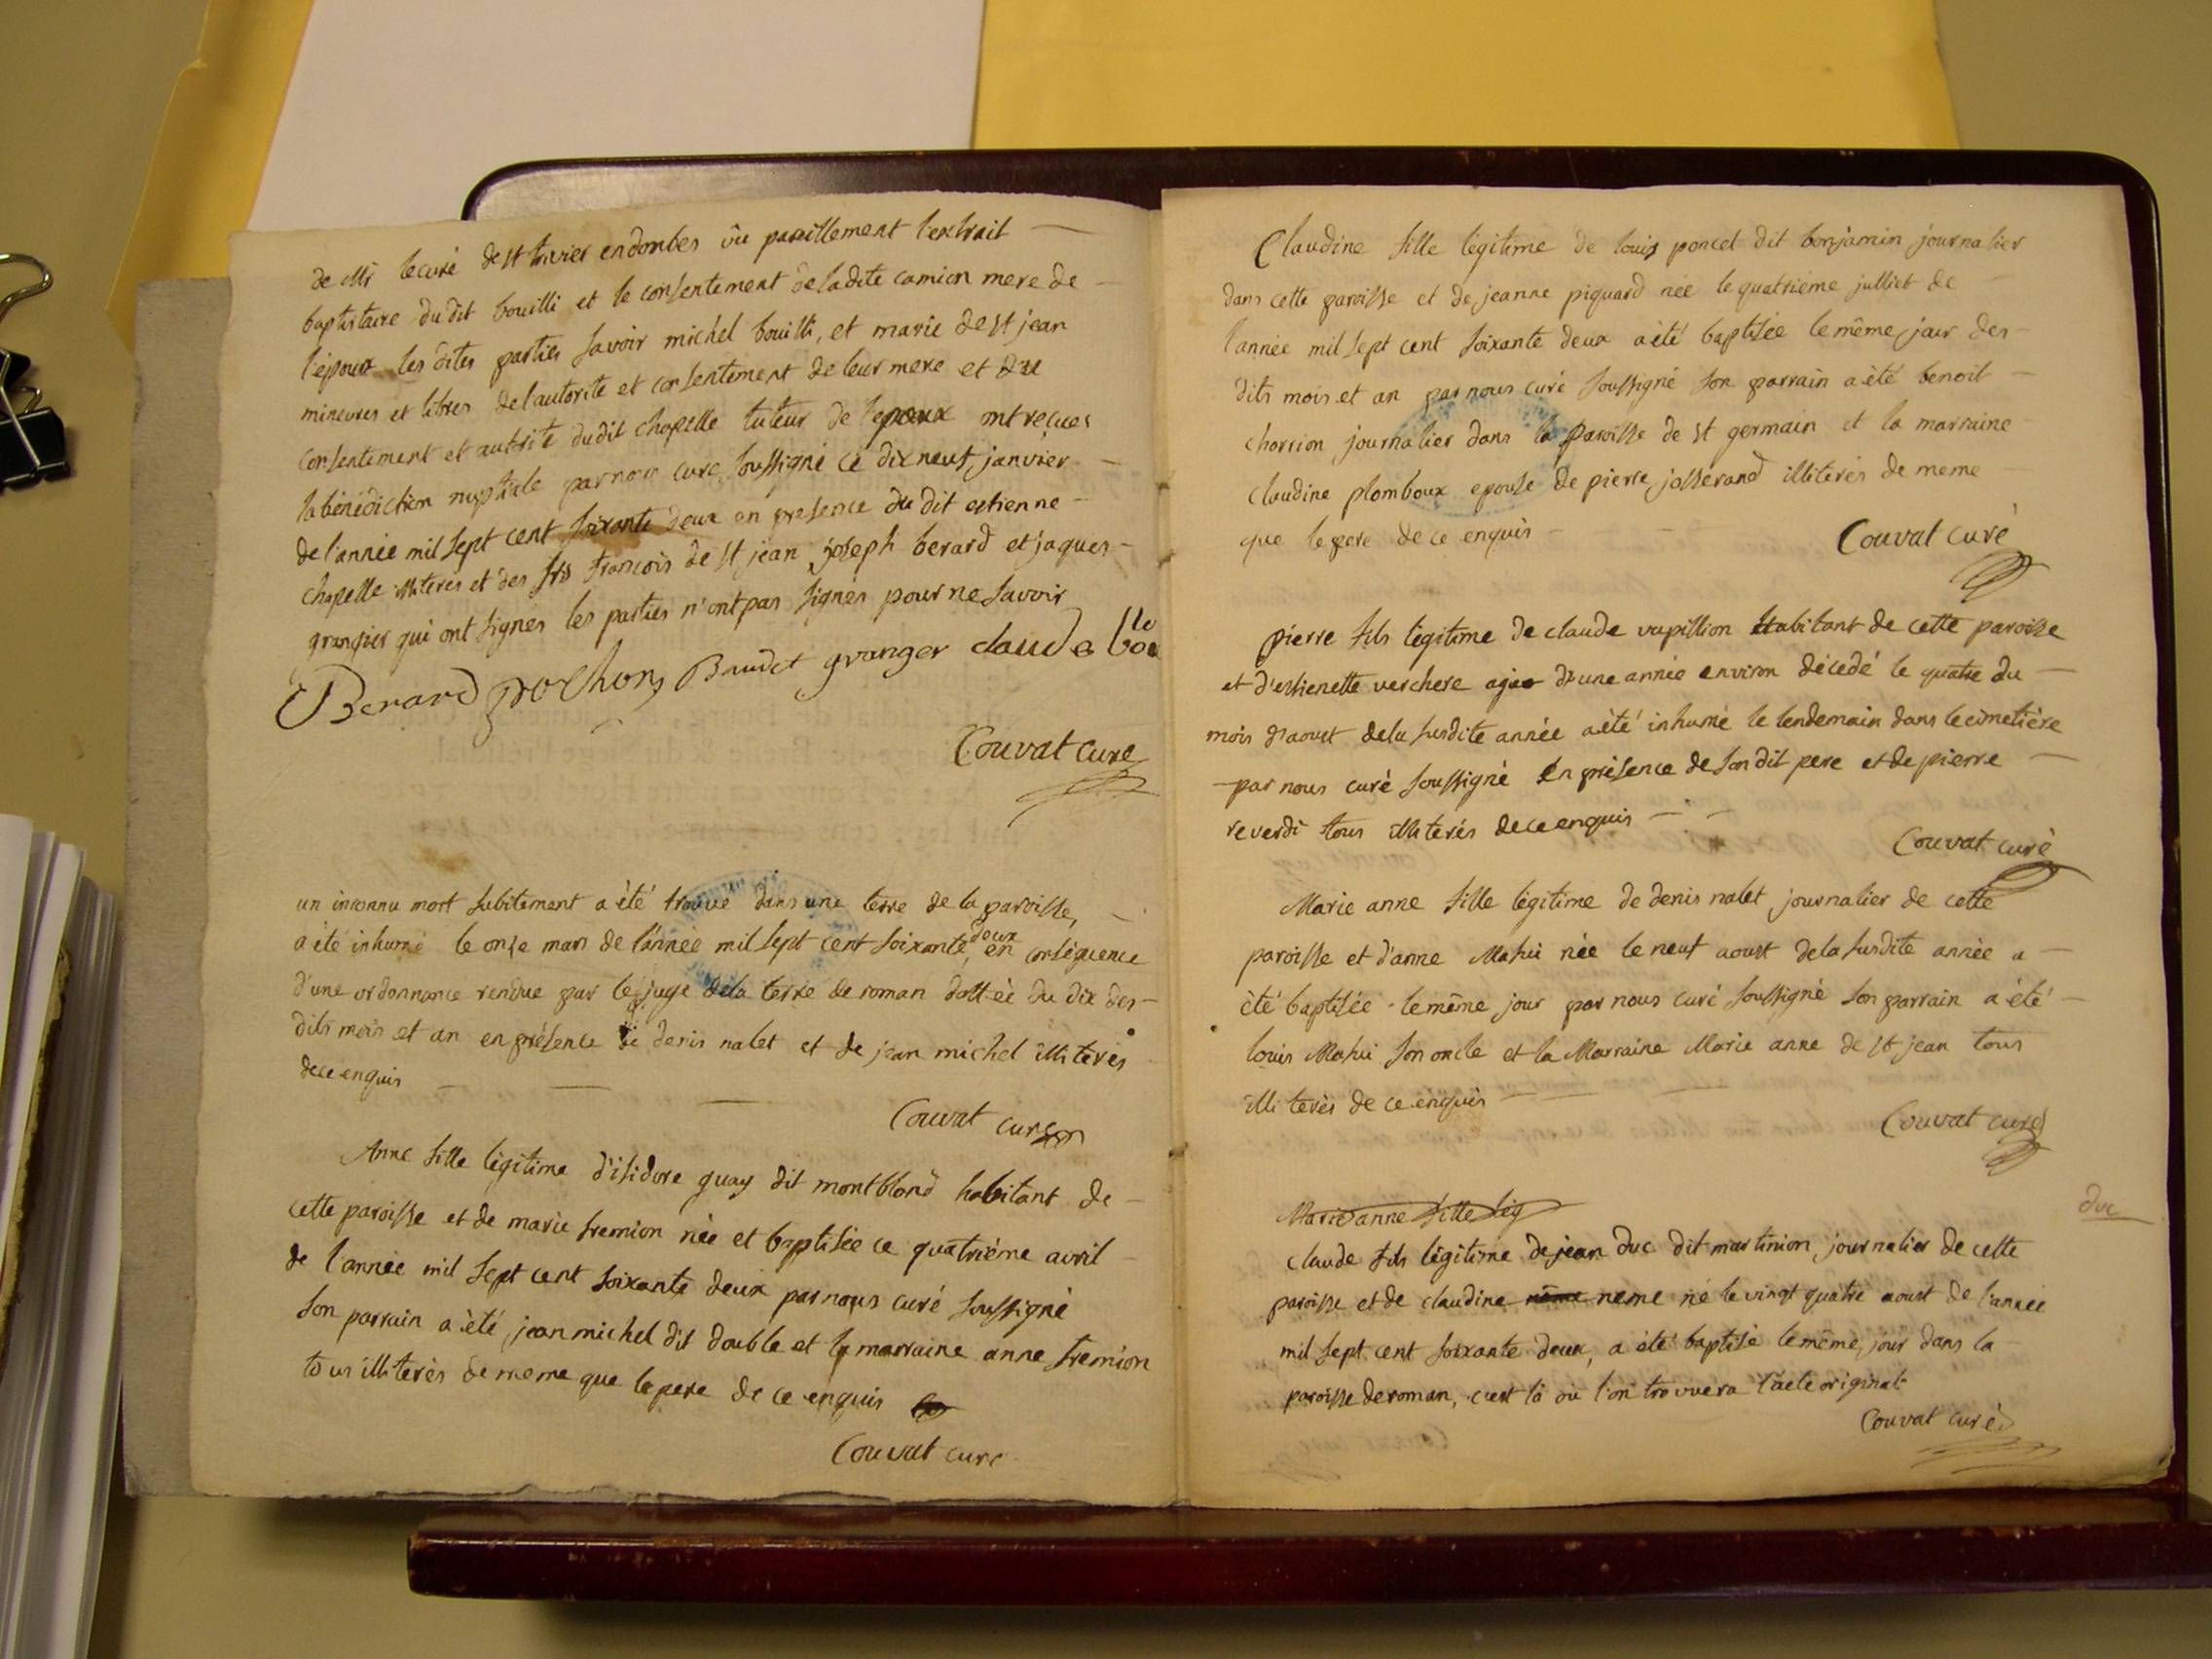 de Mr lecuré de st trivier endombes vu pareillement l'extrait
baptistaire dudit bouilli et le consentement deladite camion mere de
l'époux les dites parties savoir michel bouilli, et marie de st jean
mineures et libres del'autorité et consentement de leur mere et du
consentement et autorité dudit chapelle tuteur de l'epoux ont reçues
la bénédiction nuptiale par nous curé soussigné ce dixneuf janvier
de l'année mil sept cent soixante deux en presence du dit estienne
chapelle illiterés et des srs françois de st jean joseph berard et jaques
grangier qui ont signés les parties n'ont pas signés pour ne savoir
Berard Baudet granger claude
Couvat curé
un inconnu mort subitement a été trouvé dans une terre de la paroisse,
a été inhumé le onze mars de l'année mil sept cent soixante deux, en conséquence
d'une ordonnance rendue par le juge dela terre de roman dattéé du dix des
dits mois et an en présence de denis nalet et de jean michel illiterés
dece enquis
Couvat curé
Anne fille légitime d'isidore guay dit montbland habitant de
cette paroisse et de marie fremion née et baptisée ce quatriéme avril
de l'année mil sept cent soixante deux par nous curé soussigné
son parrain a été jean michel dit double et la marraine anne fremion
tous illiterés de meme que le pere de ce enquis
Couvat curé
Claudine fille légitime de louis poncet dit bonjamin journalier
dans cette paroisse et de jeanne piquard née le quatriéme julliet de
l'année mil sept cent soixante deux a été baptisée le même jour des
dits mois et an par nous curé soussigné son parrain a été benoit
chorrion journalier dans la paroisse de st germain et la marraine
claudine plomboux epouse de pierre josserand illiterés de meme
que le pere de ce enquis
Couvat curé
pierre fils légitime de claude vapillion habitant de cette paroisse
et d'estienette verchere agée d'une année environ décedé le quatre du
mois d'aoust dela susdite année a été inhumé le lendemain dans le cimetière
par nous curé soussigné en présence de son dit pere et de pierre
reverdi tous illiterés dece enquis
Couvat curé
Marie anne fille légitime de denis nalet journalier de cette
paroisse et d'anne Mahui née le neuf aoust dela susdite année a
été baptisée le même jour par nous curé soussigné son parrain a été
louis Mahui son oncle et la Marraine Marie anne de st jean tous
illiterés de ce enquis
Couvat curé
Marie anne fille lég
duc
claude fils légitime de jean duc dit martinion, journalier de cette
paroisse et de claudine même neme né le vingt quatre aoust de l'année
mil sept cent soixante deux, a été baptisé le même jour dans la
paroisse de roman, c'est là où l'on trouvera l'acte original
Couvat curé